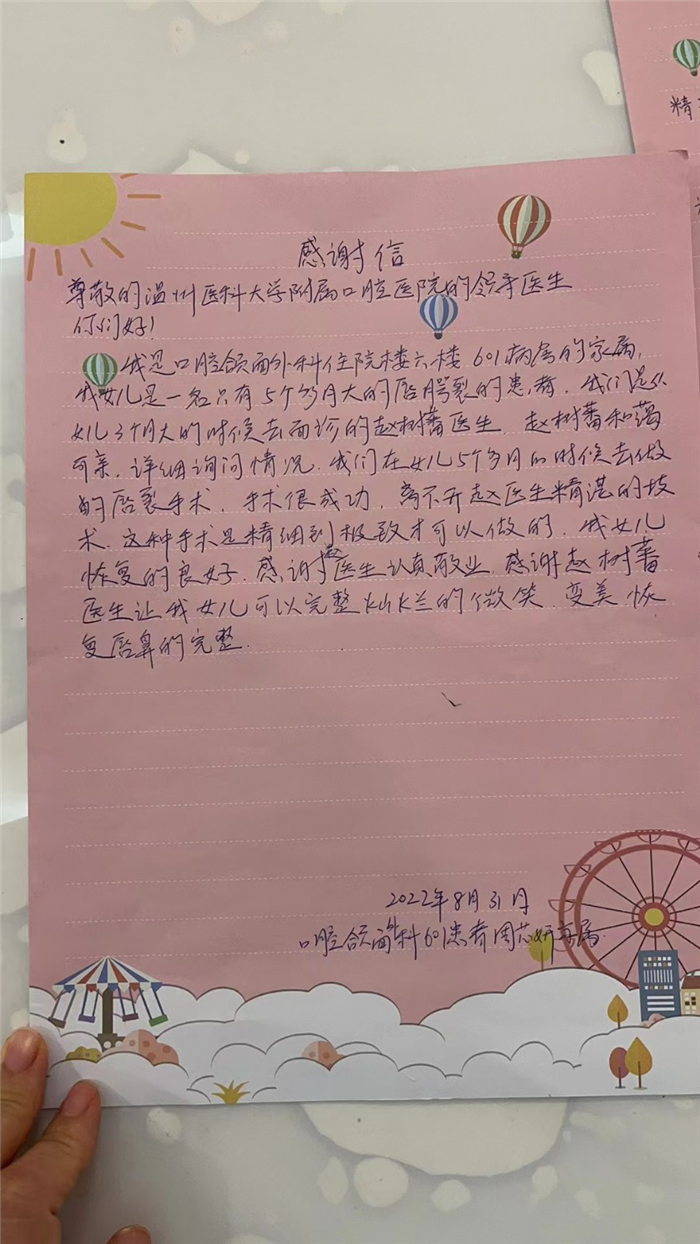 精
感谢信
尊敬的温州医科大学附属口腔医院的领导医生
你们好!
我是口腔颌面外科住院楼六楼601病房的家属,
我女儿是一名只有5个多月大的唇腭裂的患者.我们是从
女儿3个月大的时候去面诊的赵树蕃医生.赵树蕃和蔼
可亲.详细询问情况.我们在女儿5个多月的时候去做
的唇裂手术.手术很成功.离不开赵医生精湛的技
术.这种手术是精细到极致才可以做的.我女儿
恢复的良好.感谢赵医生认真敬业.感谢赵树蕃
医生让我女儿可以完整灿烂的微笑.变美.恢
复唇鼻的完整.
2022年8月31月
口腔颌面外科601患者周芯妍家属